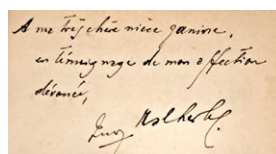 A ma très chère nièce Janine,
en témoignage de mon affection
dévouée,
Malherbe